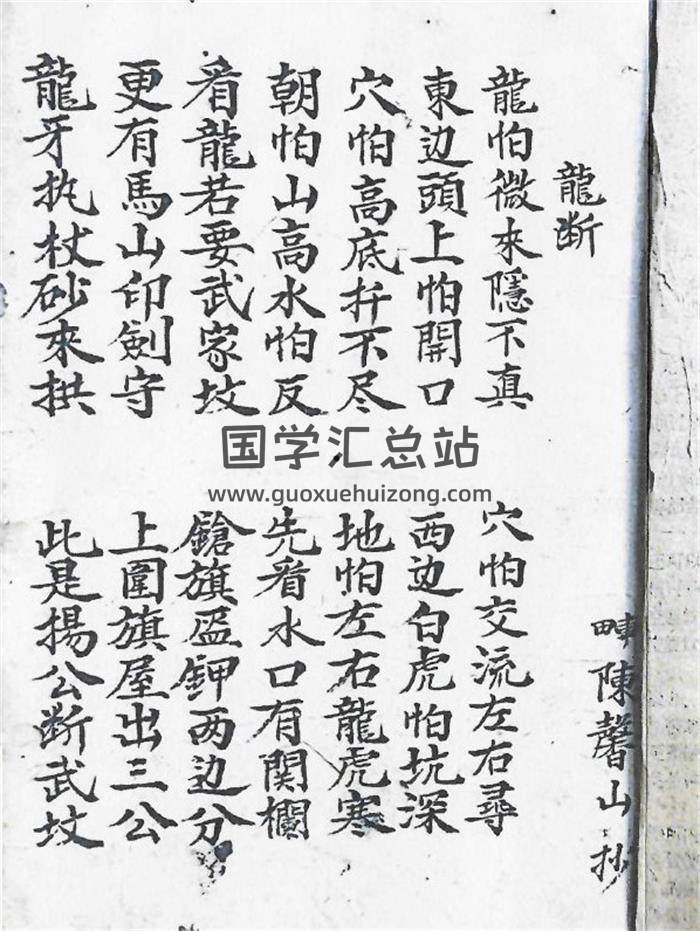 龍断
陳馨山抄
龍怕微來隱不真 穴怕交流左右尋
東边頭上怕開口 西边白虎怕坑深
穴怕高底扦不尽 地怕左右龍虎寒
朝怕山高水怕反 先看水口有関欄
看龍若要武家坟 鎗旗盔鉀两边分
更有馬山印劍守 上圍旗屋出三公
龍牙执杖砂來拱 此是揚公断武坟
国学汇总站
www.guoxuehuizong.com